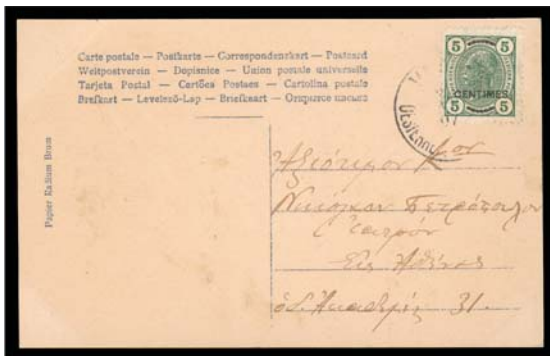 Carte postale — Postkarte — Correspondenzkart — Postcard
Weltpostverein — Dopisnice — Union postale universelle
Tarjeta Postal — Cartões Postaes — Cartolina postale
Brefkart — Levelező-Lap — Briefkaart —
5 5
CENTIMES
5 5
Papier Radium Brom
Ἀξιότιμον
Πετρόπουλον
ἰατρόν
Εἰς Ἀθήνας
ὁδ. Ἀκαδημίας 31.